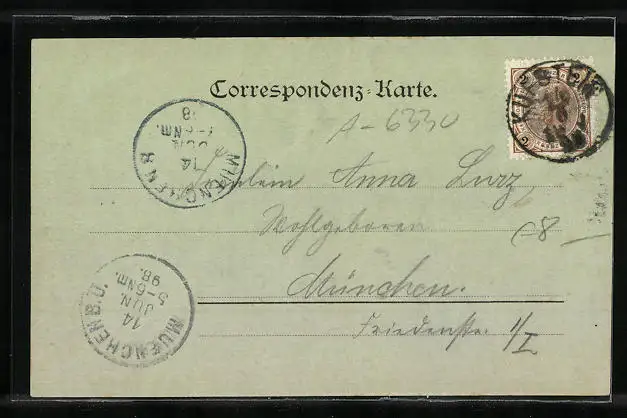 Correspondenz-Karte.
A-6330
KUFSTEIN
MUENCHEN 8
14
JUN.
98
Fräulein Anna Lurz
Wohlgeboren
München.
Friedenstr. 1/I
MUENCHEN B.O.
14
JUN.
5-6NM.
98.